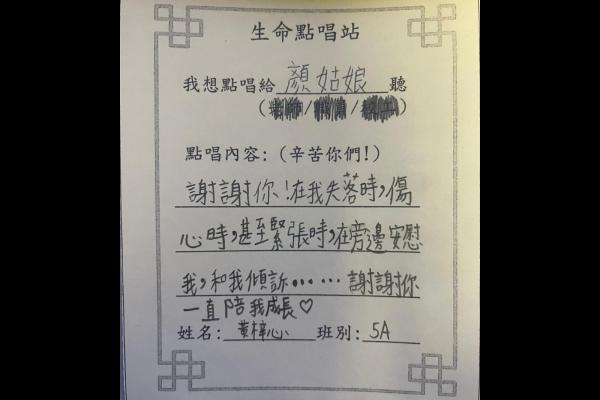 生命點唱站
我想點唱給 顏姑娘 聽
( / / )
點唱內容:(辛苦你們!)
謝謝你!在我失落時,傷
心時,甚至緊張時,在旁邊安慰
我,和我傾訴……謝謝你
一直陪我成長♡
姓名: 黃梓心 班別: 5A